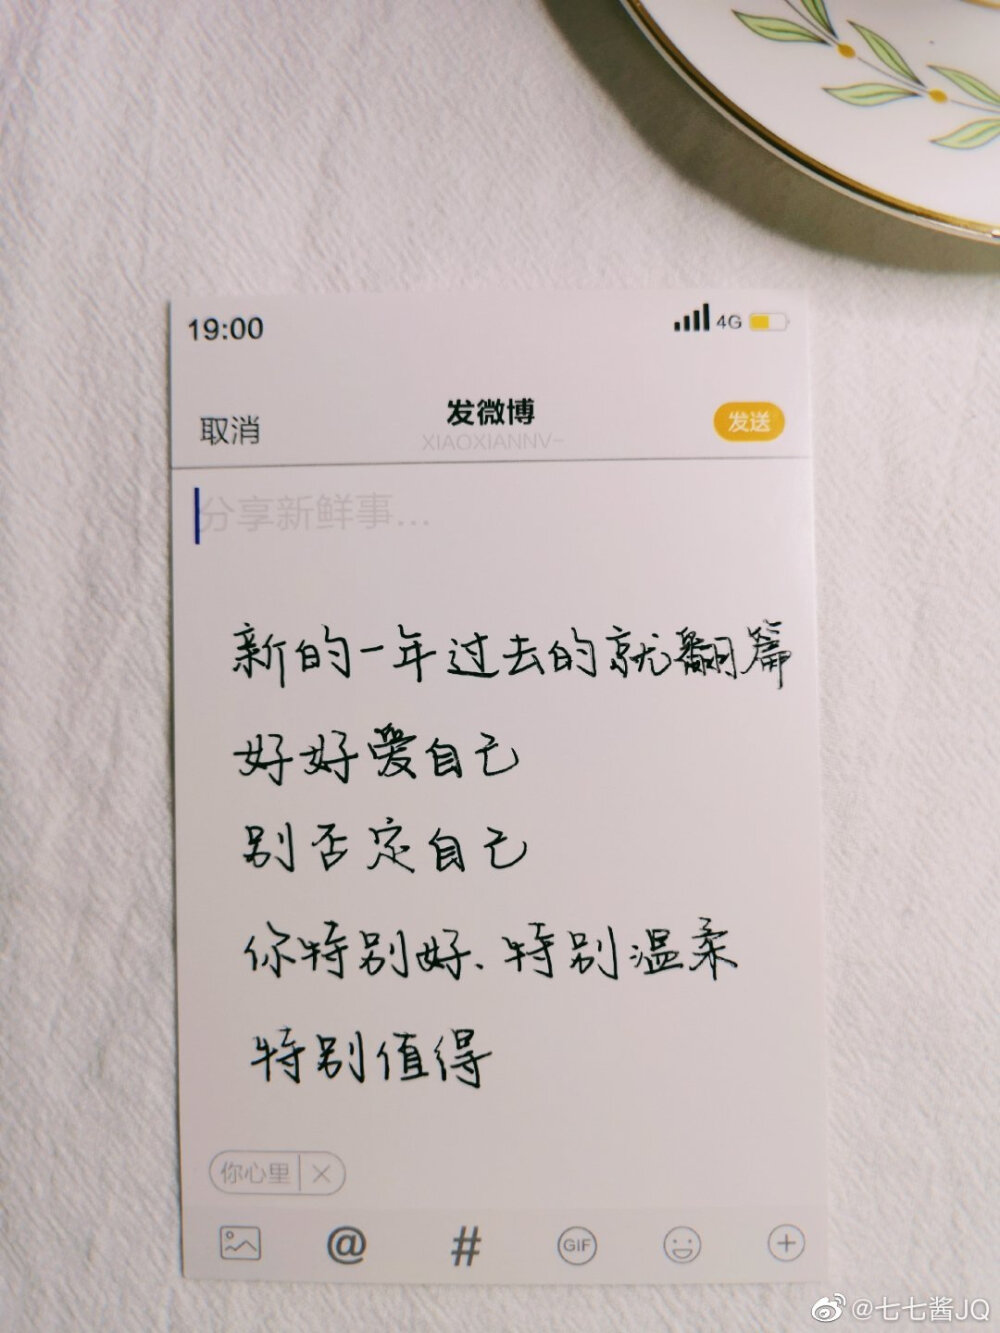 19:00 4G
取消 发微博 发送
XIAOXIANNV~
分享新鲜事...
新的一年过去的就翻篇
好好爱自己
别否定自己
你特别好、特别温柔
特别值得
你心里 ×
@ # GIF +
@七七酱JQ